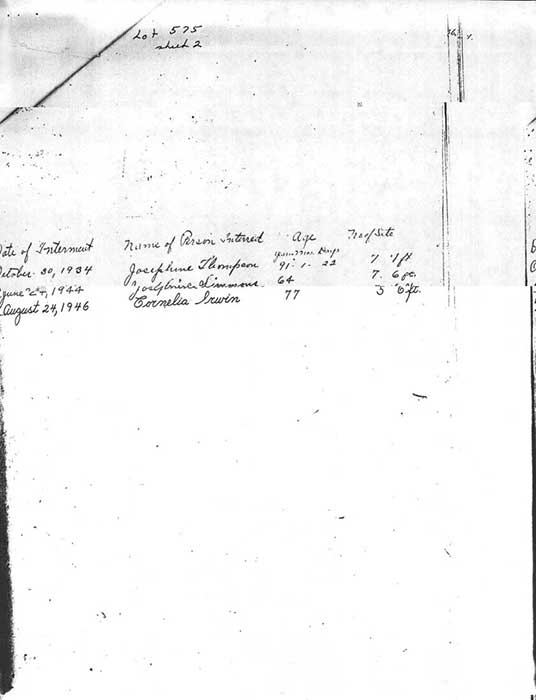 Lot 575
sheet 2
Date of Interment Name of Person Interred Age No of Site
Years Mos Days
October 30, 1934 Josephine Thompson 91 . 1 . 22 7 1 ft
June 1944 Josephine Simmons 64 7. 6
August 24, 1946 Cornelia Irwin 77 5 6 ft.